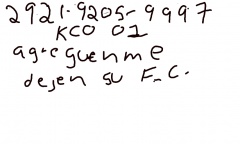 2921-9205-9997
KCO 01
agreguenme
dejen su F.C.